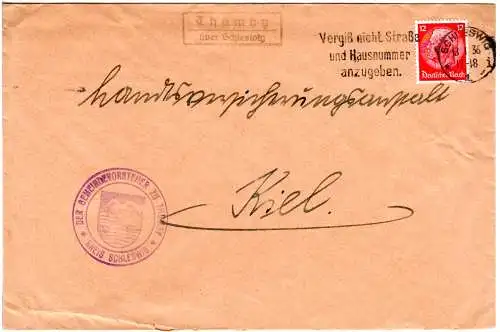 Thumby
über Schleswig
Vergiß nicht Straße
und Hausnummer
anzugeben.
SCHLESWIG
36
-18
12 12
Deutsches Reich
Landesversicherungsanstalt
Kiel.
DER GEMEINDEVORSTEHER ZU THUMBY
* KREIS SCHLESWIG *